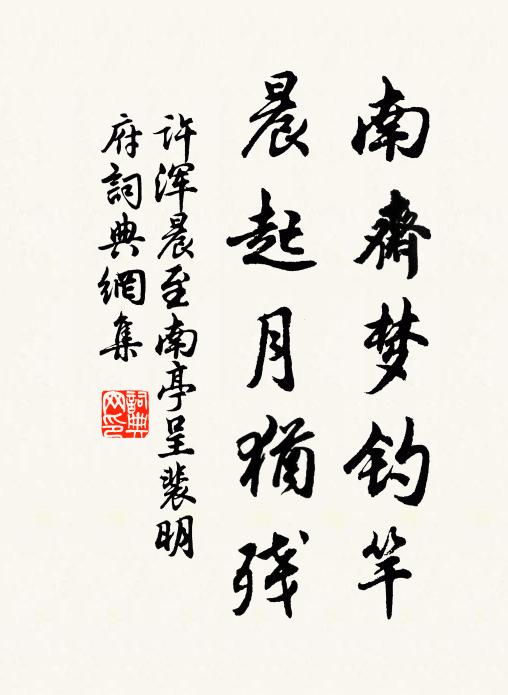 南齋梦钓竿
晨起月猶残
许浑晨至南亭呈裴明
府詞典網集
詞典网印